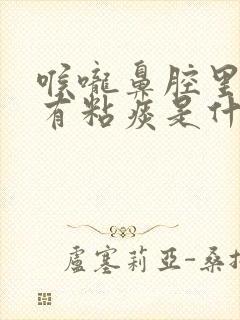 喉嚨鼻腔里
有粘痰是什
盧塞莉亞-桑托